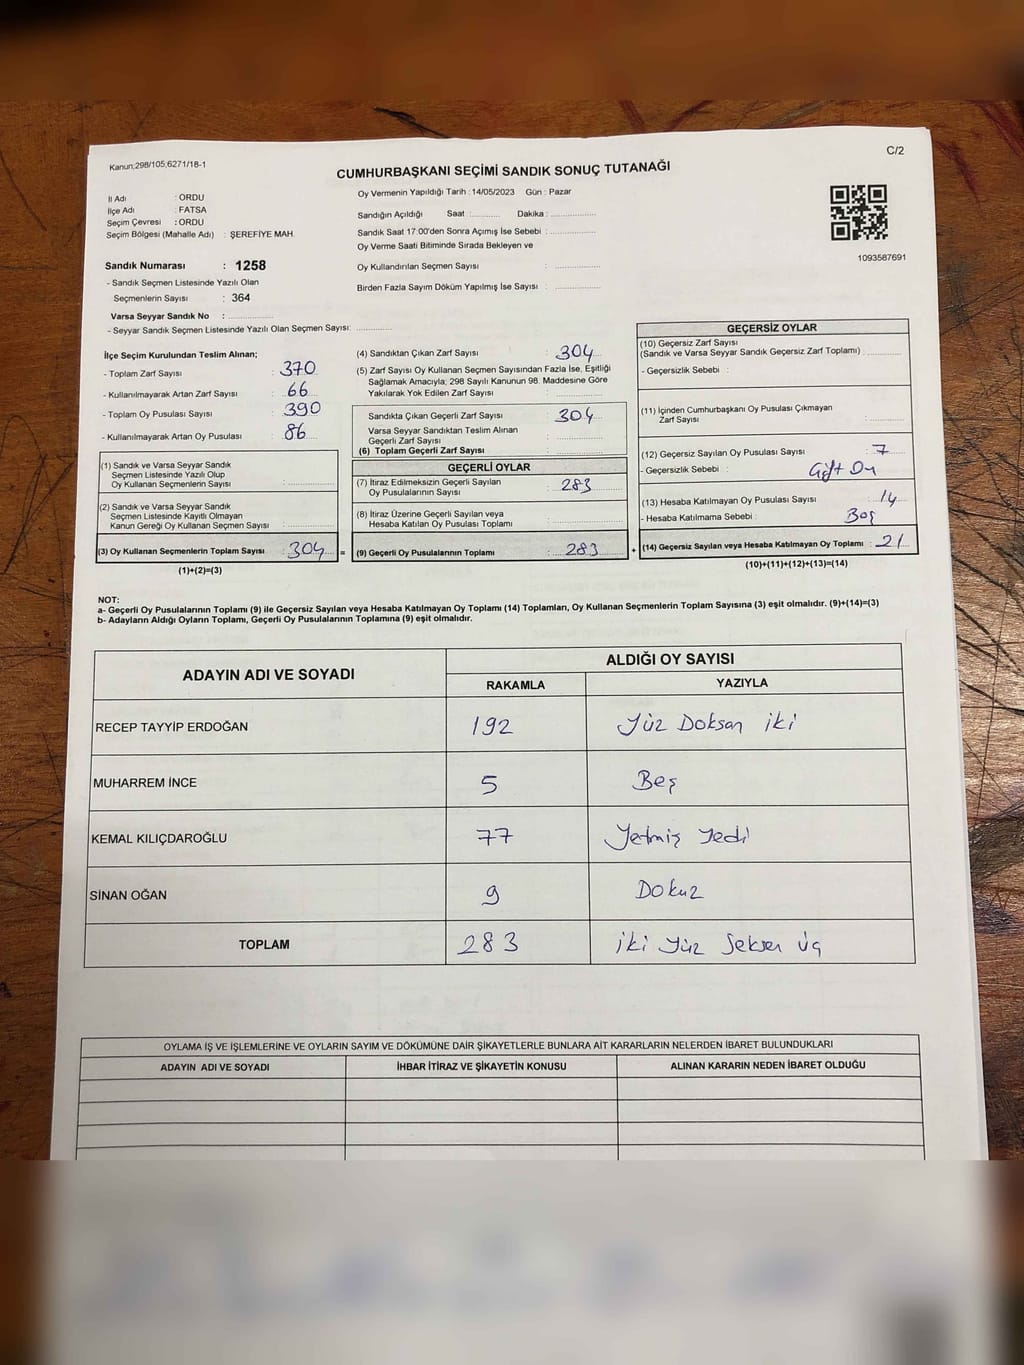 Kanun;298/105;6271/18-1
C/2
CUMHURBAŞKANI SEÇİMİ SANDIK SONUÇ TUTANAĞI
İl Adı : ORDU
İlçe Adı : FATSA
Seçim Çevresi : ORDU
Seçim Bölgesi (Mahalle Adı) : ŞEREFİYE MAH.
Oy Vermenin Yapıldığı Tarih : 14/05/2023 Gün : Pazar
Sandığın Açıldığı Saat :.......... Dakika : ...............
Sandık Saat 17:00'den Sonra Açımış İse Sebebi : ...............
Oy Verme Saati Bitiminde Sırada Bekleyen ve
Oy Kullandırılan Seçmen Sayısı : ...............
Birden Fazla Sayım Döküm Yapılmış İse Sayısı : ...............
1093587691
Sandık Numarası : 1258
- Sandık Seçmen Listesinde Yazılı Olan
Seçmenlerin Sayısı : 364
Varsa Seyyar Sandık No : ...............
- Seyyar Sandık Seçmen Listesinde Yazılı Olan Seçmen Sayısı: ............
İlçe Seçim Kurulundan Teslim Alınan;
- Toplam Zarf Sayısı : 370
- Kullanılmayarak Artan Zarf Sayısı : 66
- Toplam Oy Pusulası Sayısı : 390
- Kullanılmayarak Artan Oy Pusulası : 86
(1) Sandık ve Varsa Seyyar Sandık
Seçmen Listesinde Yazılı Olup
Oy Kullanan Seçmenlerin Sayısı : ...............
(2) Sandık ve Varsa Seyyar Sandık
Seçmen Listesinde Kayıtlı Olmayan
Kanun Gereği Oy Kullanan Seçmen Sayısı : ...............
(3) Oy Kullanan Seçmenlerin Toplam Sayısı : 304 =
(1)+(2)=(3)
(4) Sandıktan Çıkan Zarf Sayısı : 304
(5) Zarf Sayısı Oy Kullanan Seçmen Sayısından Fazla İse, Eşitliği
Sağlamak Amacıyla; 298 Sayılı Kanunun 98. Maddesine Göre
Yakılarak Yok Edilen Zarf Sayısı : ...............
Sandıkta Çıkan Geçerli Zarf Sayısı : 304
Varsa Seyyar Sandıktan Teslim Alınan
Geçerli Zarf Sayısı : ...............
(6) Toplam Geçerli Zarf Sayısı : ...............
GEÇERLİ OYLAR
(7) İtiraz Edilmeksizin Geçerli Sayılan
Oy Pusulalarının Sayısı : 283
(8) İtiraz Üzerine Geçerli Sayılan veya
Hesaba Katılan Oy Pusulası Toplamı : ...............
(9) Geçerli Oy Pusulalarının Toplamı : 283 +
GEÇERSİZ OYLAR
(10) Geçersiz Zarf Sayısı
(Sandık ve Varsa Seyyar Sandık Geçersiz Zarf Toplamı) : ...........
- Geçersizlik Sebebi :
(11) İçinden Cumhurbaşkanı Oy Pusulası Çıkmayan
Zarf Sayısı : ...........
(12) Geçersiz Sayılan Oy Pusulası Sayısı : 7
- Geçersizlik Sebebi : Çift Oy
(13) Hesaba Katılmayan Oy Pusulası Sayısı : 14
- Hesaba Katılmama Sebebi : Boş
(14) Geçersiz Sayılan veya Hesaba Katılmayan Oy Toplamı : 21
(10)+(11)+(12)+(13)=(14)
NOT:
a- Geçerli Oy Pusulalarının Toplamı (9) ile Geçersiz Sayılan veya Hesaba Katılmayan Oy Toplamı (14) Toplamları, Oy Kullanan Seçmenlerin Toplam Sayısına (3) eşit olmalıdır. (9)+(14)=(3)
b- Adayların Aldığı Oyların Toplamı, Geçerli Oy Pusulalarının Toplamına (9) eşit olmalıdır.
ADAYIN ADI VE SOYADI
ALDIĞI OY SAYISI
RAKAMLA YAZIYLA
RECEP TAYYİP ERDOĞAN 192 Yüz Doksan iki
MUHARREM İNCE 5 Beş
KEMAL KILIÇDAROĞLU 77 Yetmiş Yedi
SİNAN OĞAN 9 Dokuz
TOPLAM 283 iki Yüz Seksen üç
OYLAMA İŞ VE İŞLEMLERİNE VE OYLARIN SAYIM VE DÖKÜMÜNE DAİR ŞİKAYETLERLE BUNLARA AİT KARARLARIN NELERDEN İBARET BULUNDUKLARI
ADAYIN ADI VE SOYADI İHBAR İTİRAZ VE ŞİKAYETİN KONUSU ALINAN KARARIN NEDEN İBARET OLDUĞU